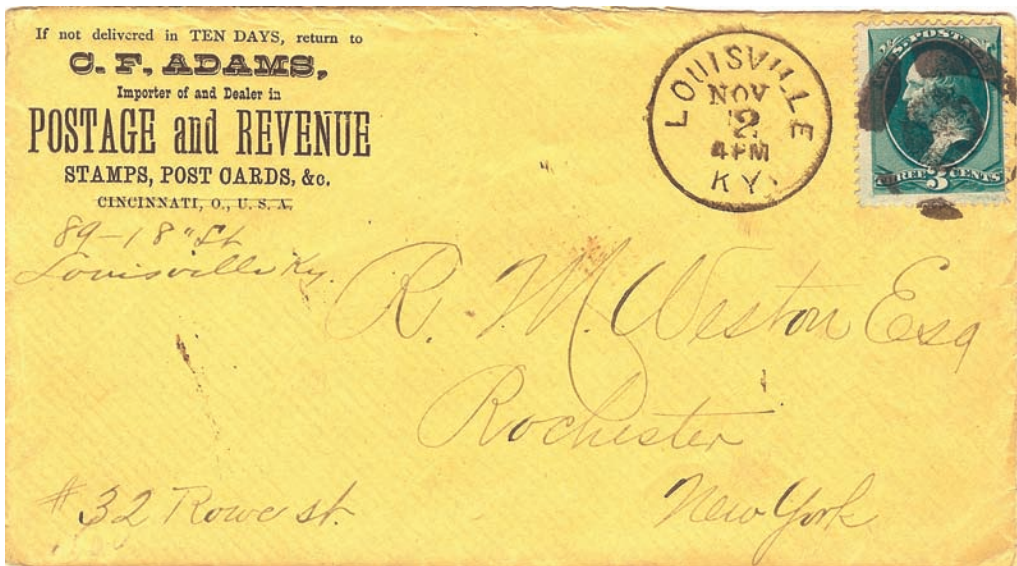 If not delivered in TEN DAYS, return to
C. F. ADAMS,
Importer of and Dealer in
POSTAGE and REVENUE
STAMPS, POST CARDS, &c.
CINCINNATI, O., U. S. A.
89-18" St
Louisville Ky.
LOUISVILLE
NOV
12
4 PM
KY.
U.S. POSTAGE
THREE 3 CENTS
R. M. Weston Esq
Rochester
New York
# 32 Rowe st.